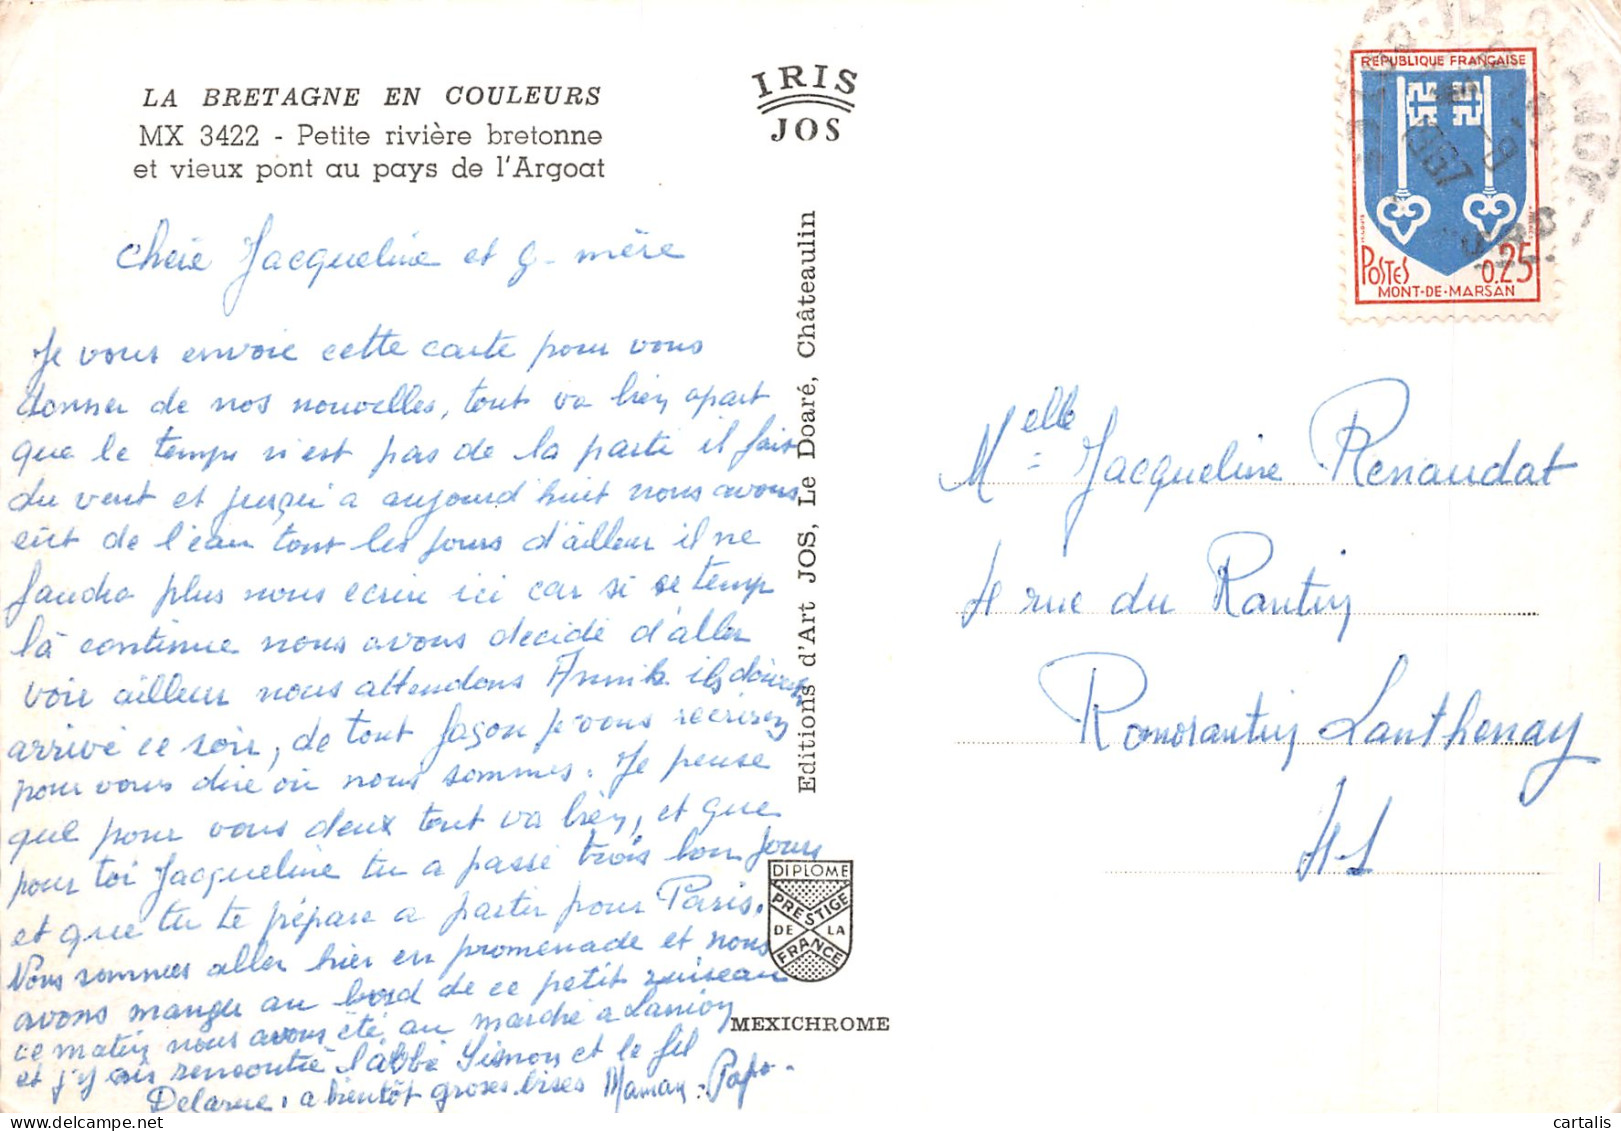 LA BRETAGNE EN COULEURS
MX 3422 - Petite rivière bretonne
et vieux pont au pays de l'Argoat
IRIS
JOS
chère Jacqueline et g-mère
Je vous envoie cette carte pour vous
donner de nos nouvelles, tout va bien apart
que le temps n'est pas de la partie il fait
du vent et jusqu'a aujourd'huit nous avons
eût de l'eau tout les jours d'ailleur il ne
faudra plus nous ecrire ici car si se temp
là continue nous avons decidé d'aller
voir ailleur nous attendons Annik ils doivent
arrivé ce soir, de tout façon je vous recrirey
pour vous dire où nous sommes. Je pense
que pour vous deux tout va bien, et que
pour toi Jacqueline tu a passé trois bon jours
et que tu te prépare a partir pour Paris.
Nous sommes aller hier en promenade et nous
avons manger au bord de ce petit ruiseau
ce matin nous avons été au marché a Lanion
et j'y ais rencontré l'abbé Simon et le fil
Delarue, a bientôt groses bises Maman-Papa-
Editions d'Art JOS, Le Doaré, Châteaulin
DIPLOME
PRESTIGE
DE LA
FRANCE
MEXICHROME
REPUBLIQUE FRANÇAISE
POSTES 0.25
MONT-DE-MARSAN
1967
Melle Jacqueline Renaudat
4 rue du Rantin
Romorantin Lanthenay
41
cartalis